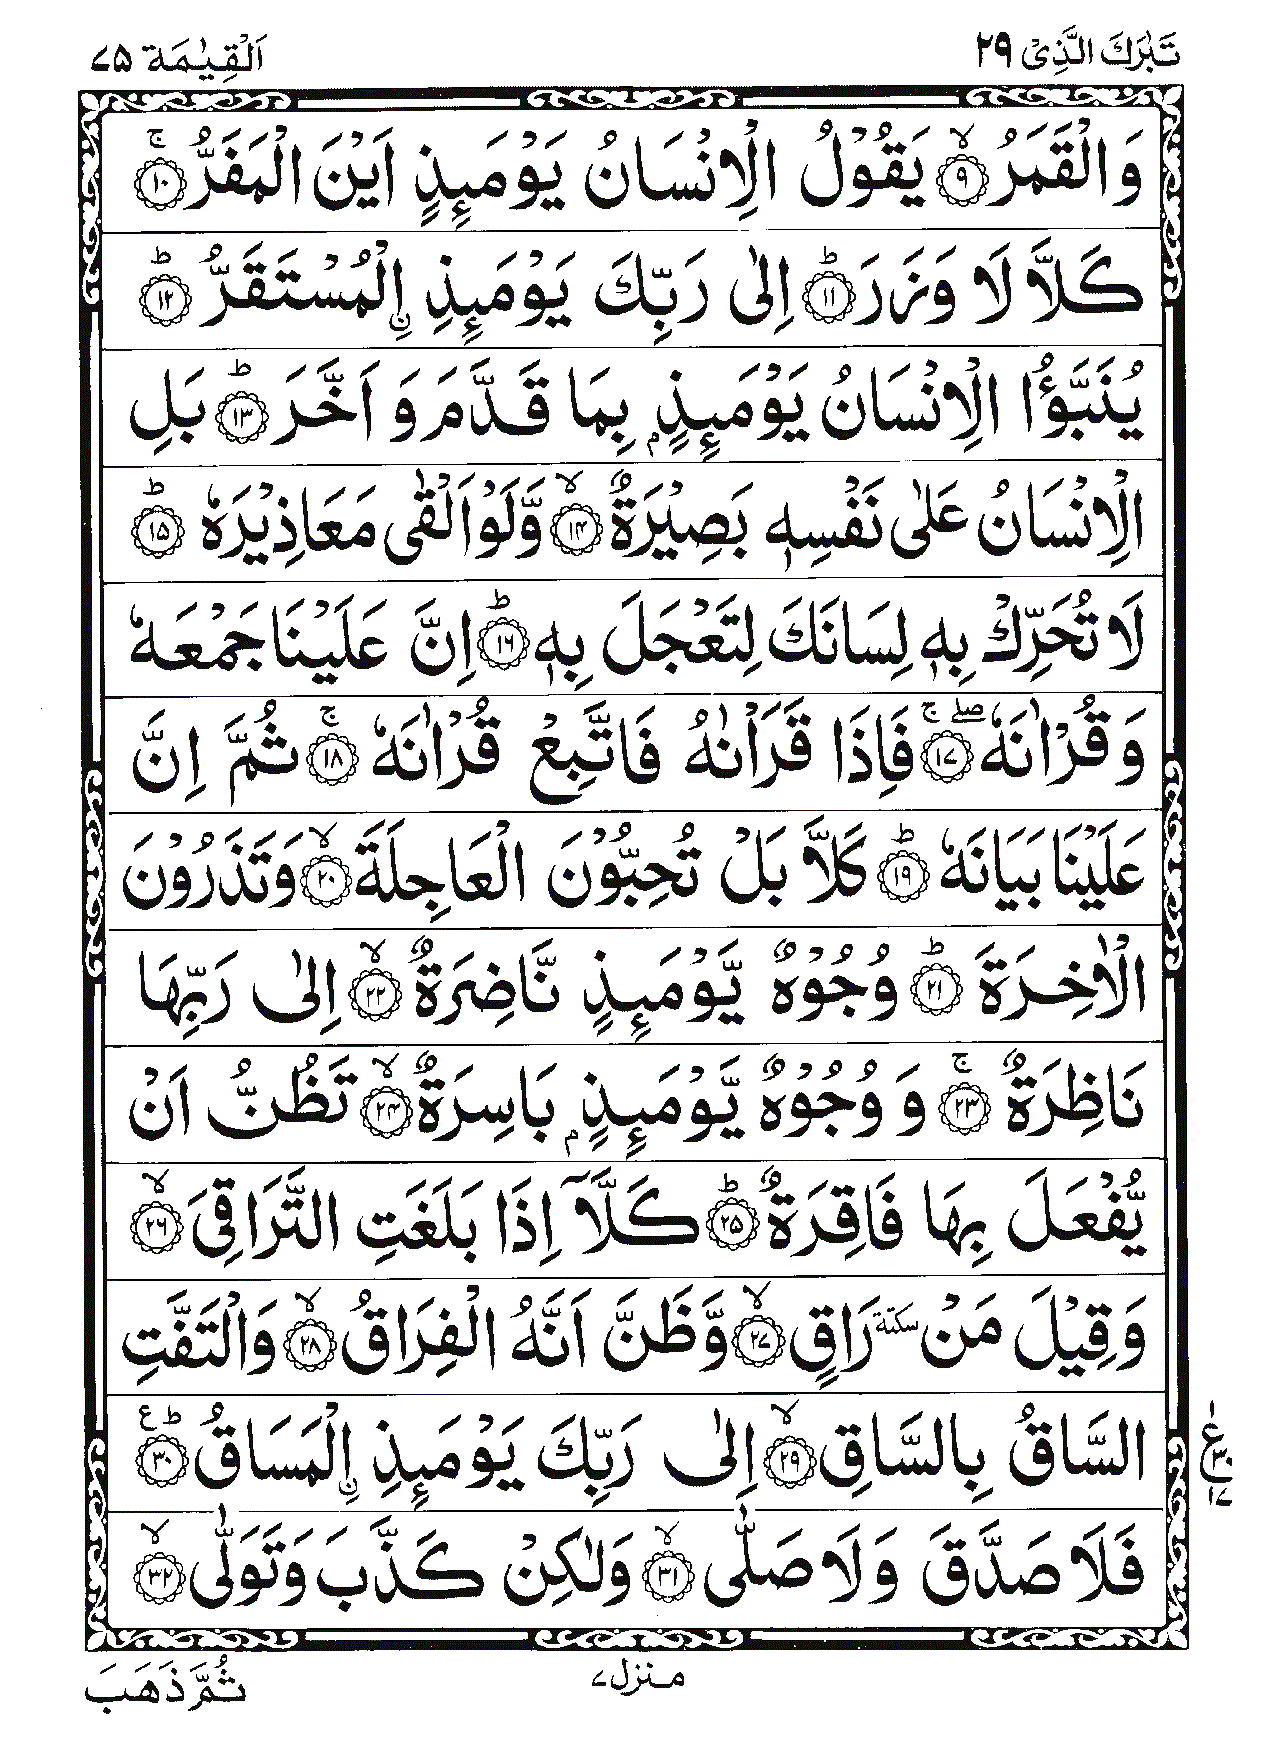 تَبٰرَكَ الَّذِیْ ۲۹
اَلْقِیٰمَة ۷۵
وَالْقَمَرُ ۙ‏﴿۹﴾ یَقُوْلُ الْاِنْسَانُ یَوْمَىِٕذٍ اَیْنَ الْمَفَرُّ ۚ‏﴿۱۰﴾
كَلَّا لَا وَزَرَ ؕ‏﴿۱۱﴾ اِلٰى رَبِّكَ یَوْمَىِٕذِ ِ۟الْمُسْتَقَرُّ ؕ‏﴿۱۲﴾
یُنَبَّؤُا الْاِنْسَانُ یَوْمَىِٕذٍۭ بِمَا قَدَّمَ وَ اَخَّرَ ؕ‏﴿۱۳﴾ بَلِ
الْاِنْسَانُ عَلٰى نَفْسِهٖ بَصِیْرَةٌ ۙ‏﴿۱۴﴾ وَّلَوْ اَلْقٰى مَعَاذِیْرَهٗ ؕ‏﴿۱۵﴾
لَا تُحَرِّكْ بِهٖ لِسَانَكَ لِتَعْجَلَ بِهٖ ؕ‏﴿۱۶﴾ اِنَّ عَلَیْنَا جَمْعَهٗ
وَ قُرْاٰنَهٗ ۖۚ‏﴿۱۷﴾ فَاِذَا قَرَاْنٰهُ فَاتَّبِعْ قُرْاٰنَهٗ ۚ‏﴿۱۸﴾ ثُمَّ اِنَّ
عَلَیْنَا بَیَانَهٗ ؕ‏﴿۱۹﴾ كَلَّا بَلْ تُحِبُّوْنَ الْعَاجِلَةَ ۙ‏﴿۲۰﴾ وَتَذَرُوْنَ
الْاٰخِرَةَ ؕ‏﴿۲۱﴾ وُجُوْهٌ یَّوْمَىِٕذٍ نَّاضِرَةٌ ۙ‏﴿۲۲﴾ اِلٰى رَبِّهَا
نَاظِرَةٌ ۚ‏﴿۲۳﴾ وَ وُجُوْهٌ یَّوْمَىِٕذٍۭ بَاسِرَةٌ ۙ‏﴿۲۴﴾ تَظُنُّ اَنْ
یُّفْعَلَ بِهَا فَاقِرَةٌ ؕ‏﴿۲۵﴾ كَلَّاۤ اِذَا بَلَغَتِ التَّرَاقِیَ ۙ‏﴿۲۶﴾
وَقِیْلَ مَنْ سكتة رَاقٍ ۙ‏﴿۲۷﴾ وَّظَنَّ اَنَّهُ الْفِرَاقُ ۙ‏﴿۲۸﴾ وَالْتَفَّتِ
السَّاقُ بِالسَّاقِ ۙ‏﴿۲۹﴾ اِلٰى رَبِّكَ یَوْمَىِٕذِ ِ۟الْمَسَاقُ ؕ ع ‏﴿۳۰﴾
۱ ع ۳۰ ۱۷
فَلَا صَدَّقَ وَلَا صَلّٰى ۙ‏﴿۳۱﴾ وَلٰكِنْ كَذَّبَ وَتَوَلّٰى ۙ‏﴿۳۲﴾
منزل ۷
ثُمَّ ذَهَبَ